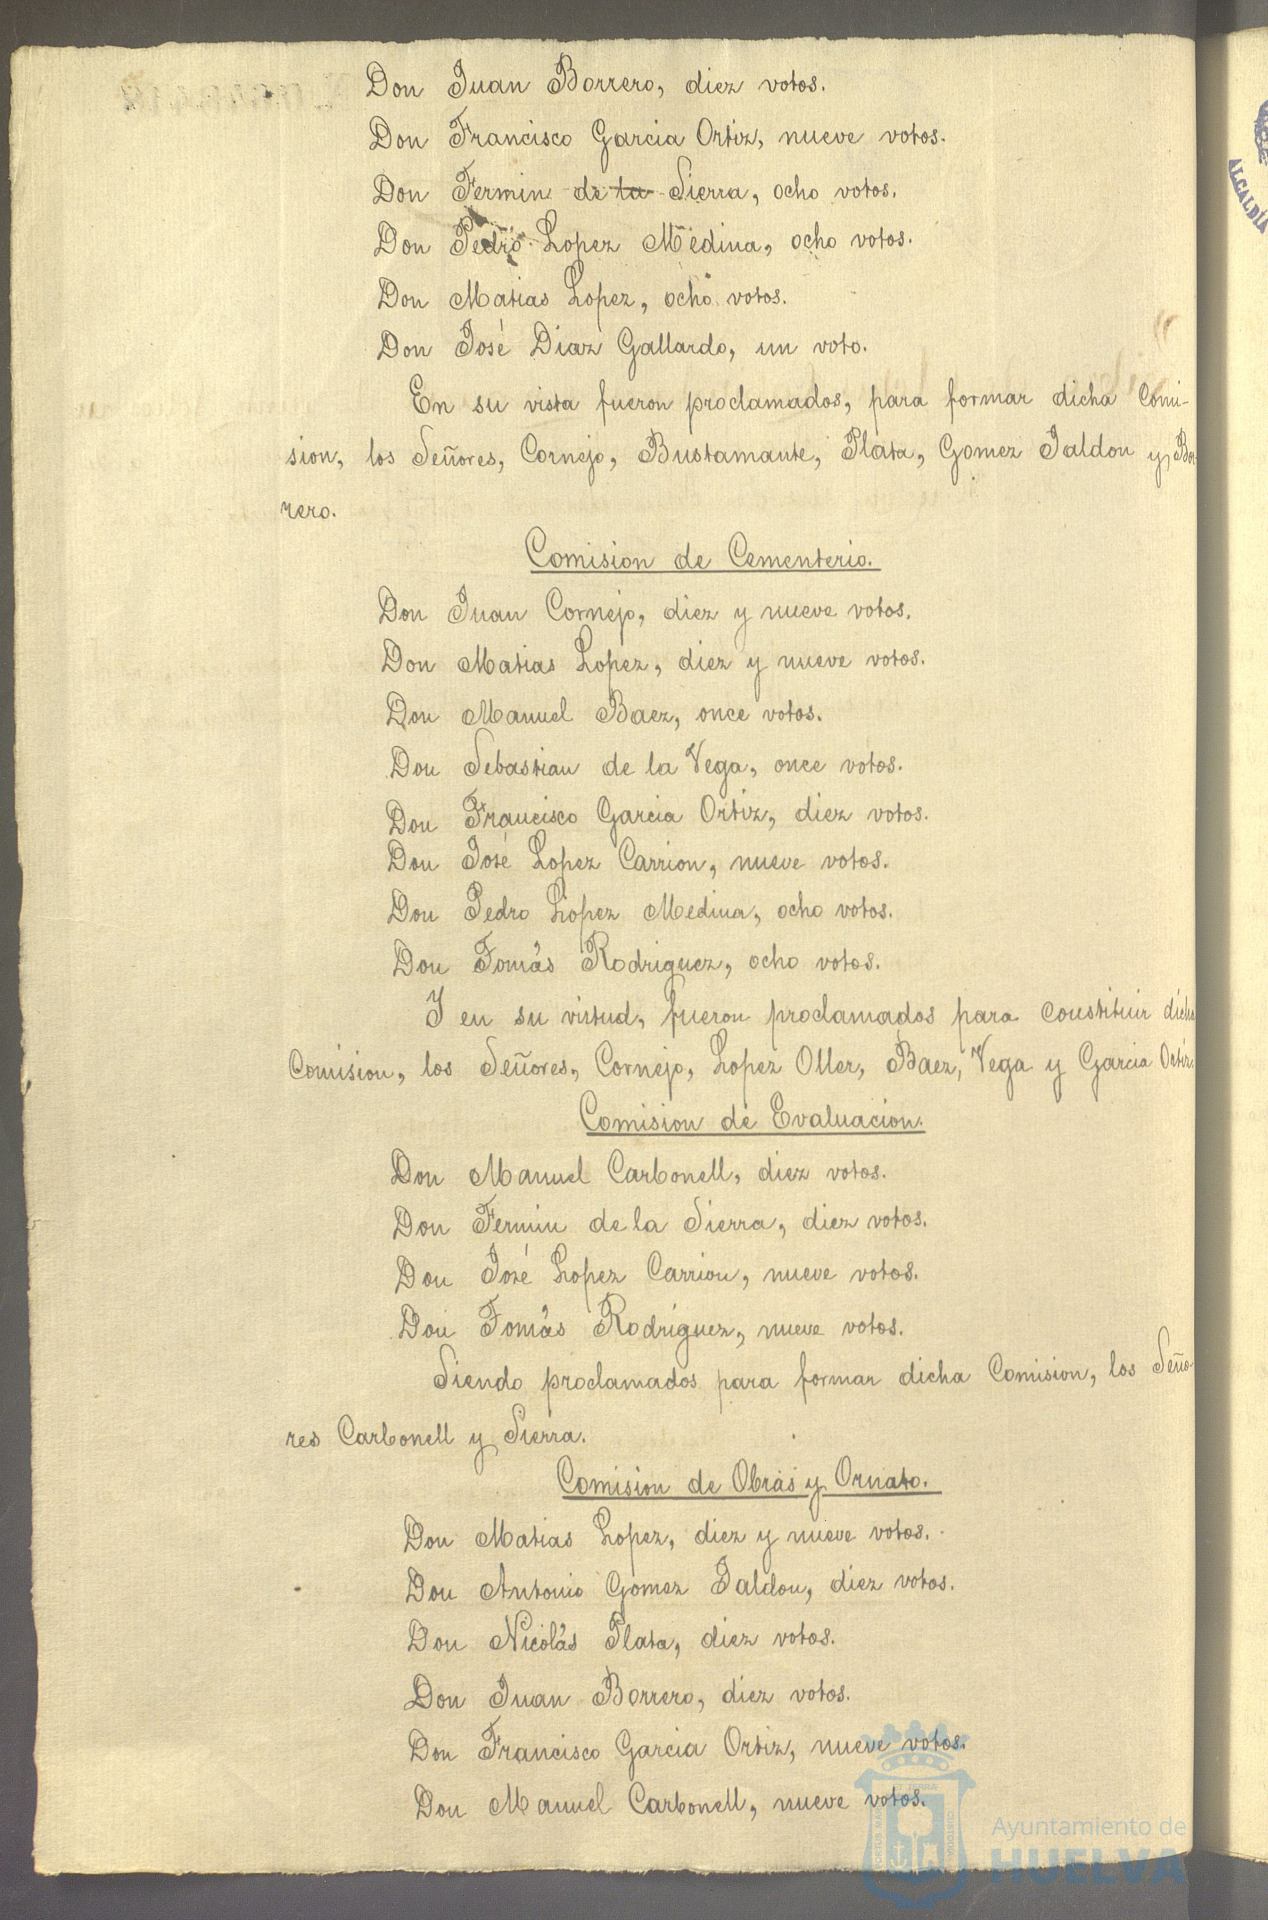 Don Juan Borrero, diez votos.
Don Francisco Garcia Ortiz, nueve votos.
Don Fermin de la Sierra, ocho votos.
Don Pedro Lopez Medina, ocho votos.
Don Matias Lopez, ocho votos.
Don José Diaz Gallardo, un voto.
En su vista fueron proclamados, para formar dicha Comi-
sion, los Señores, Cornejo, Bustamante, Plata, Gomez Jaldon y Bor-
rero.
Comision de Cementerio.
Don Juan Cornejo, diez y nueve votos.
Don Matias Lopez, diez y nueve votos.
Don Manuel Baez, once votos.
Don Sebastian de la Vega, once votos.
Don Francisco Garcia Ortiz, diez votos.
Don José Lopez Carrion, nueve votos.
Don Pedro Lopez Medina, ocho votos.
Don Tomás Rodriguez, ocho votos.
Y en su virtud, fueron proclamados para constituir dicha
Comision, los Señores, Cornejo, Lopez Oller, Baez, Vega y Garcia Ortiz.
Comision de Evaluacion.
Don Manuel Carbonell, diez votos.
Don Fermin de la Sierra, diez votos.
Don José Lopez Carrion, nueve votos.
Don Tomás Rodriguez, nueve votos.
Siendo proclamados para formar dicha Comision, los Seño-
res Carbonell y Sierra.
Comision de Obras y Ornato.
Don Matias Lopez, diez y nueve votos.
Don Antonio Gomez Jaldon, diez votos.
Don Nicolás Plata, diez votos.
Don Juan Borrero, diez votos.
Don Francisco Garcia Ortiz, nueve votos.
Don Manuel Carbonell, nueve votos.
Ayuntamiento de
HUELVA
ALCALDÍA